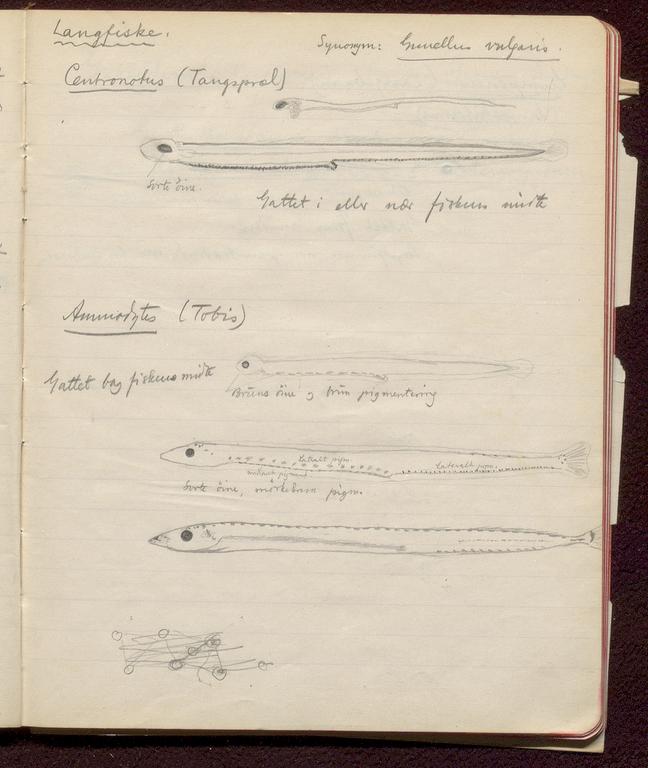 Langfiske.
Synonym: Gunellus vulgaris.
Centronotus (Tangspræl)
Sorte öine.
Gattet i eller nær fiskens midte
Ammodytes (Tobis)
Gattet bag fiskens midte
Brune öine og brun pigmentering
Lateralt pigm.
Lateralt pigm.
pigment
Sorte öine, mörkebrun pigm.